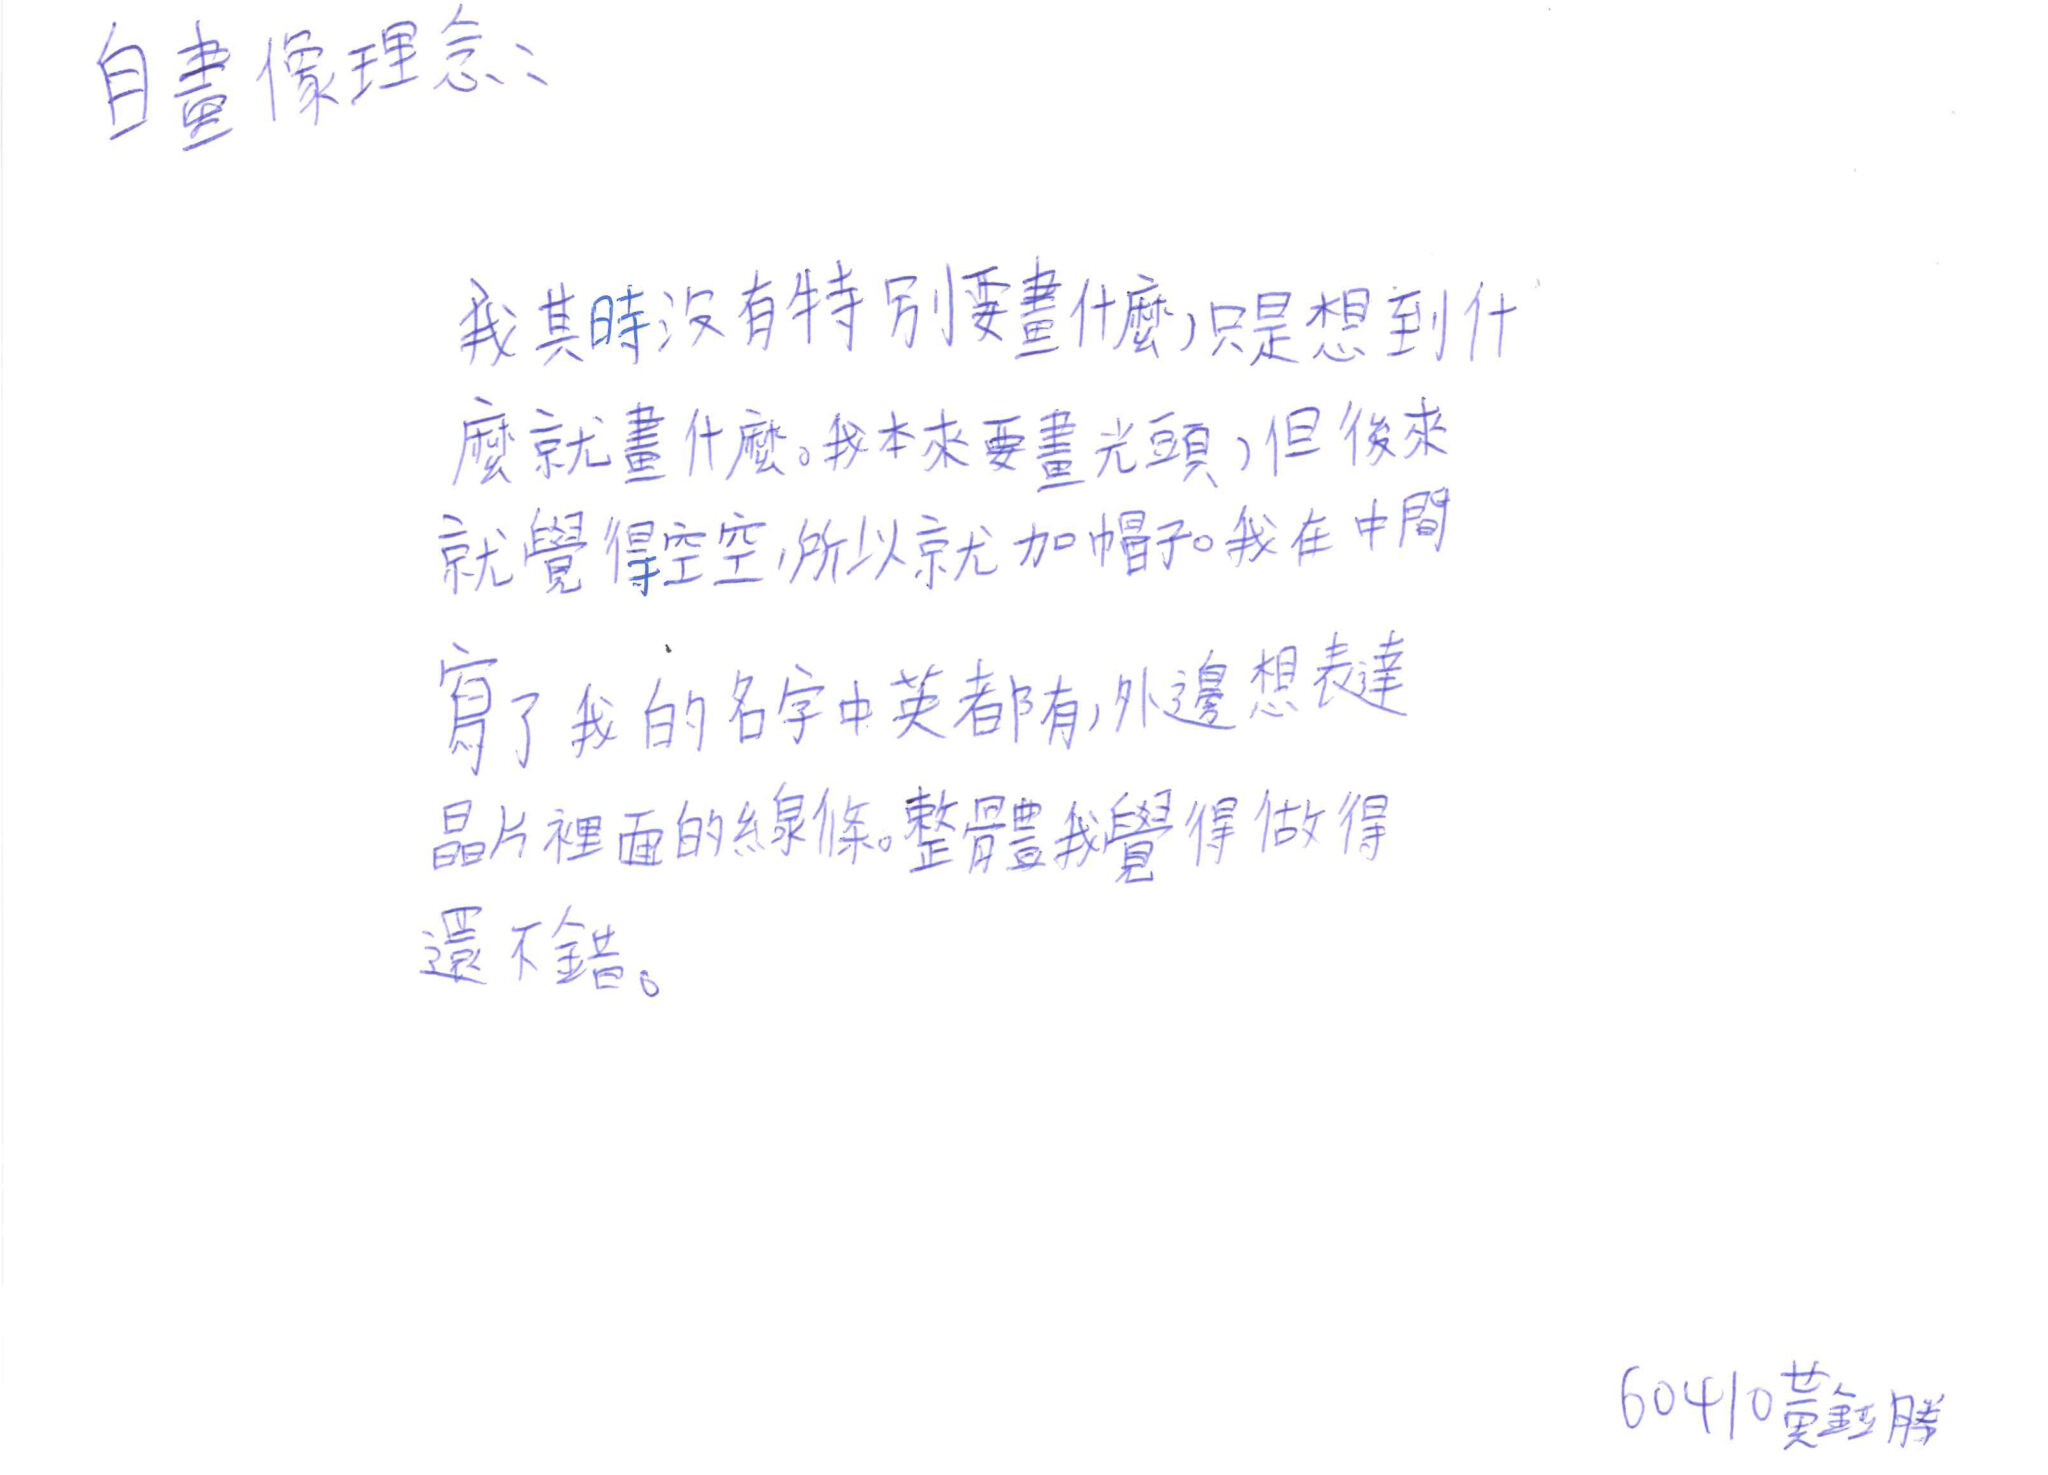 自畫像理念:
我其時沒有特別要畫什麼,只是想到什
麼就畫什麼。我本來要畫光頭,但後來
就覺得空空,所以就加帽子。我在中間
寫了我的名字中英都有,外邊想表達
晶片裡面的線條。整體我覺得做得
還不錯。
60410黃鈺勝